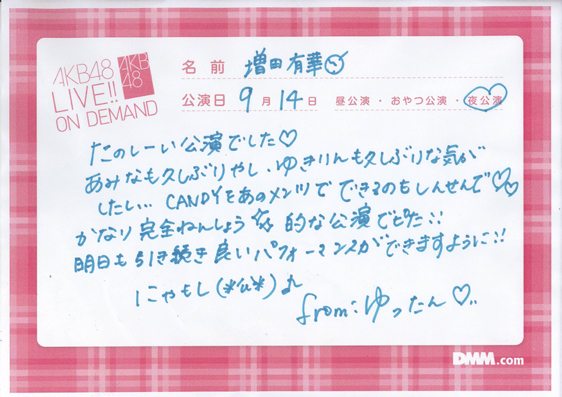 AKB48
LIVE!!
ON DEMAND
AKB
48
名前 増田有華
公演日 9月14日 昼公演・おやつ公演・夜公演
たのしーい公演でした♡
あみなも久しぶりやし、ゆきりんも久しぶりな気が
したい… CANDYをあのメンツでできるのもしんせんで♡♡
かなり完全ねんしょう 的な公演でした!!
明日も引き続き良いパフォーマンスができますように!!
にゃもし(*ü*)♪
from:ゆったん♡
DMM.com